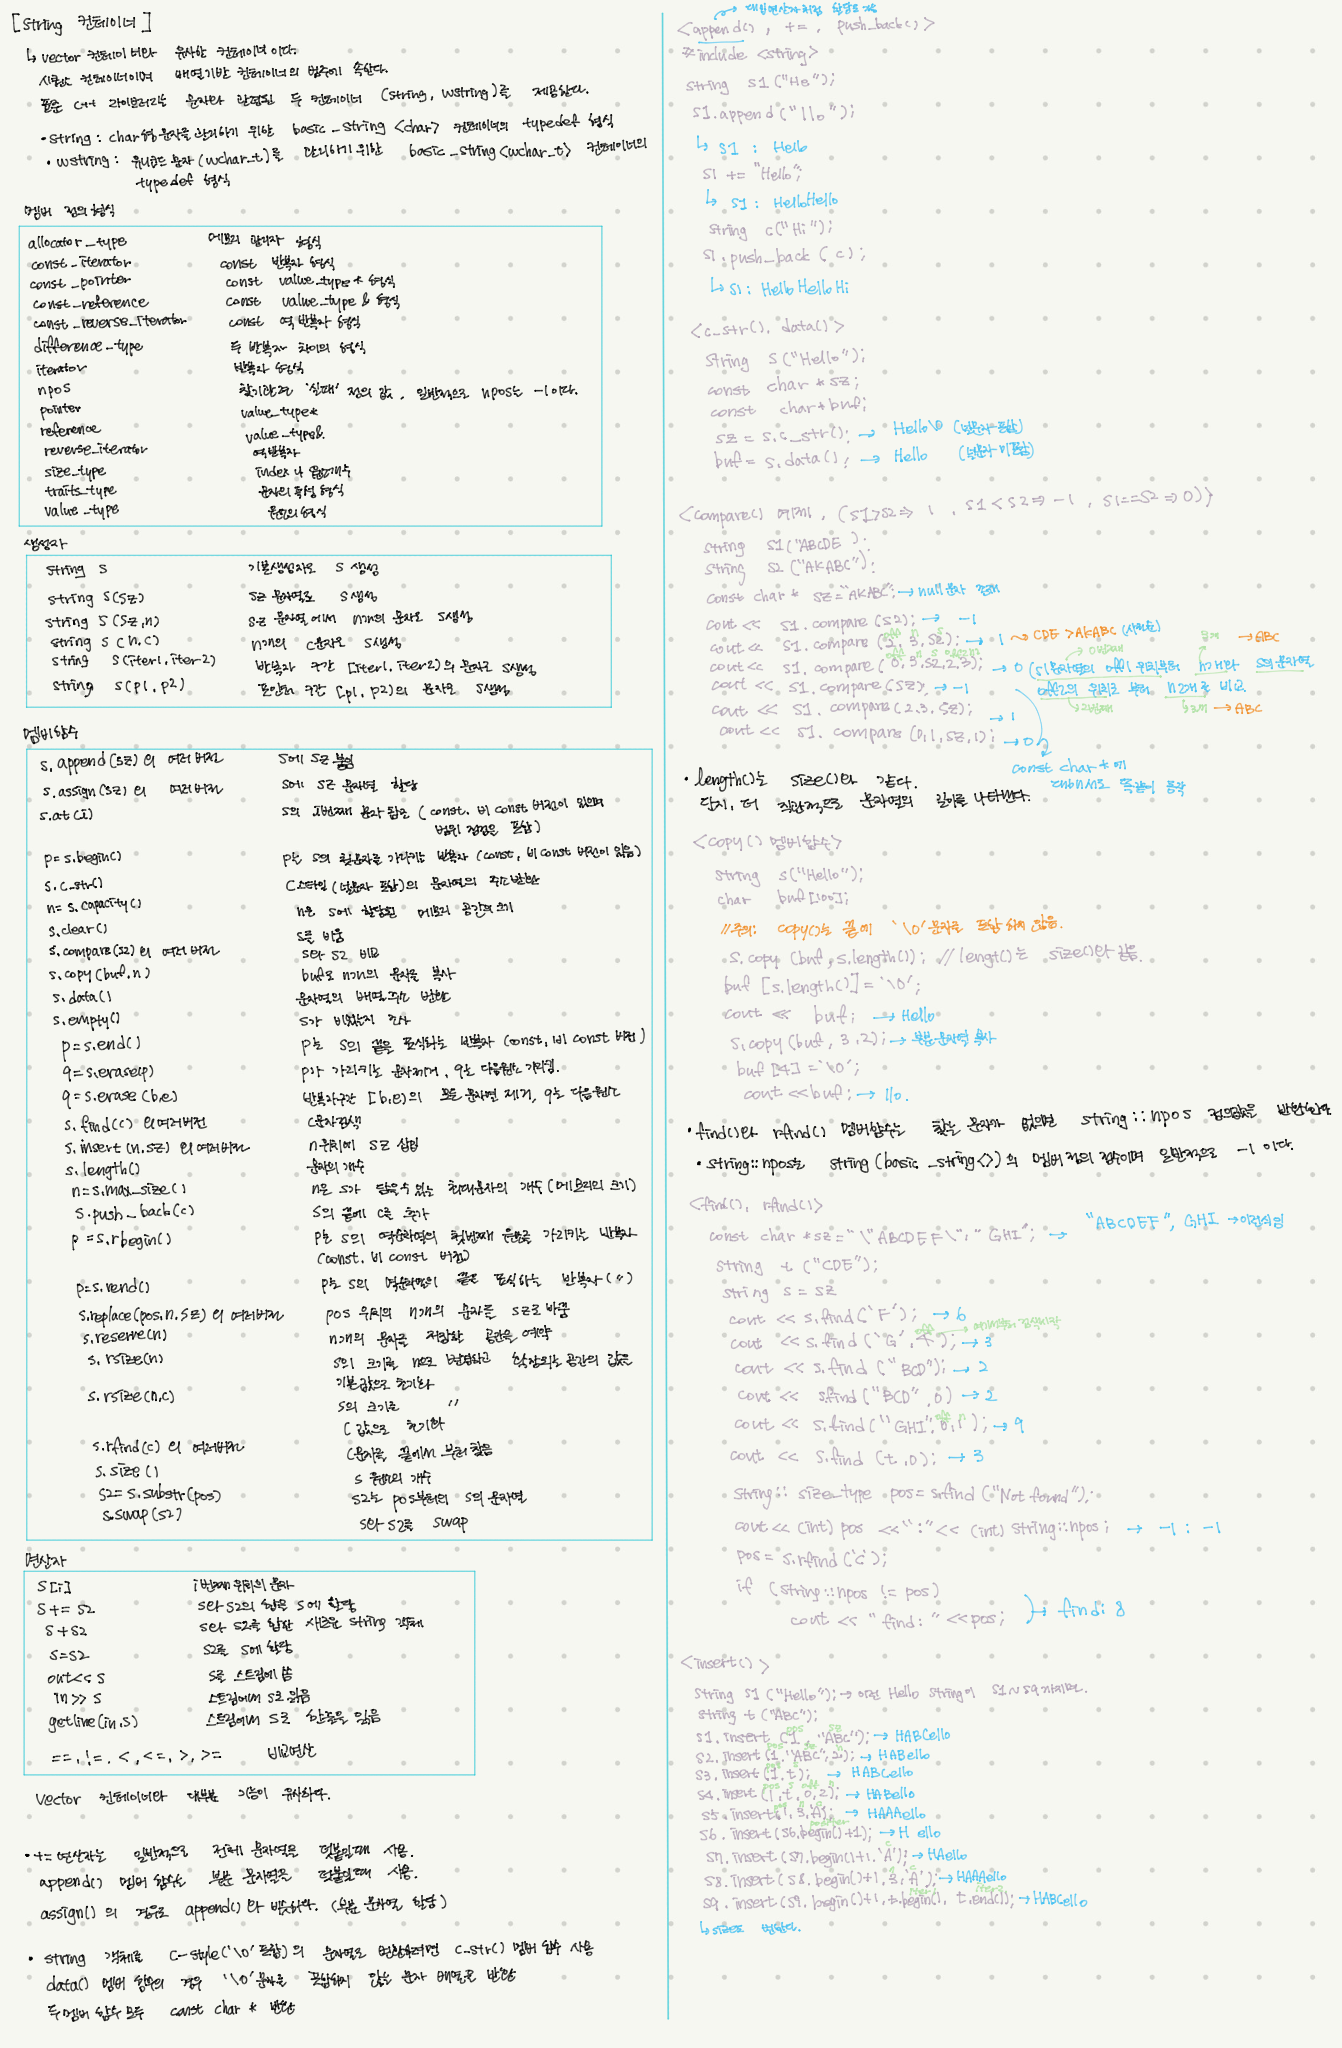 [string 컨테이너]
↳ vector 컨테이너와 유사한 컨테이너 이다.
시퀀스 컨테이너이며 배열기반 컨테이너의 범주에 속한다.
표준 C++ 라이브러리는 문자와 관련된 두 컨테이너 (string, wstring)를 제공한다.
• string : char형 문자를 관리하기 위한 basic_string <char> 컨테이너의 typedef 형식
• wstring : 유니코드 문자(wchar_t)를 관리하기 위한 basic_string<wchar_t> 컨테이너의
typedef 형식
멤버 정의 형식
allocator_type 메모리 관리자 형식
const_iterator const 반복자 형식
const_pointer const value_type * 형식
const_reference const value_type & 형식
const_reverse_iterator const 역 반복자 형식
difference_type 두 반복자 차이의 형식
iterator 반복자 형식
npos 찾기관련 '실패' 정의 값, 일반적으로 npos는 -1 이다.
pointer value_type*
reference value_type&
reverse_iterator 역반복자
size_type index나 원소개수
traits_type 문자의 특성 형식
value_type 원소의 형식
생성자
string s 기본생성자로 s 생성
string s(sz) sz 문자열로 s 생성
string s(sz,n) sz 문자열에서 n개의 문자로 s생성
string s(n,c) n개의 c문자로 s생성
string s(iter1,iter2) 반복자 구간 [iter1,iter2)의 문자로 s생성
string s(p1,p2) 포인터 구간 [p1,p2)의 문자로 s생성
멤버함수
s.append(sz)의 여러버전 s에 sz 붙임
s.assign(sz)의 여러버전 s에 sz 문자열 할당
s.at(i) s의 i번째 문자 참조 (const, 비 const 버전이 있으며
범위 점검을 포함)
p=s.begin() p는 s의 첫문자를 가리키는 반복자 (const, 비 const 버전이 있음)
s.c_str() C스타일(널문자 포함)의 문자열의 주소반환
n=s.capacity() n은 s에 할당된 메모리 공간의 크기
s.clear() s를 비움
s.compare(s2)의 여러버전 s와 s2 비교
s.copy(buf,n) buf로 n개의 문자를 복사
s.data() 문자열의 배열 주소 반환
s.empty() s가 비었는지 검사
p=s.end() p는 s의 끝을 표식하는 반복자 (const, 비 const 버전)
q=s.erase(p) p가 가리키는 문자제거, q는 다음원소 가리킴.
q=s.erase(b,e) 반복자구간 [b,e)의 모든 문자열 제거, q는 다음원소
s.find(c)의여러버전 c문자검색
s.insert(n,sz)의여러버전 n위치에 sz 삽입
s.length() 문자의 개수
n=s.max_size() n은 s가 담을수 있는 최대문자의 개수 (메모리의 크기)
s.push_back(c) s의 끝에 c를 추가
p=s.rbegin() p는 s의 역순차열의 첫번째 원소를 가리키는 반복자
(const, 비 const 버전)
p=s.rend() p는 s의 역순차열의 끝을 표식하는 반복자 (〃)
s.replace(pos,n,sz)의 여러버전 pos 위치의 n개의 문자를 sz로 바꿈
s.reserve(n) n개의 문자를 저장할 공간을 예약
s.rsize(n) s의 크기를 n으로 변경하고 확장되는 공간의 값을
기본값으로 초기화
s.rsize(n,c) s의 크기를 〃
c 값으로 초기화
s.rfind(c)의 여러버전 c문자를 끝에서 부터 찾음
s.size() s 원소의 개수
s2=s.substr(pos) s2는 pos부터의 s의 문자열
s.swap(s2) s와 s2를 swap
연산자
s[i] i번째 위치의 문자
s+=s2 s와 s2의 합을 s에 할당
s+s2 s와 s2를 합한 새로운 string 객체
s=s2 s2를 s에 할당
out<<s s를 스트림에 씀
in>>s 스트림에서 s로 읽음
getline(in,s) 스트림에서 s로 한줄을 읽음
==, !=, <, <=, >, >= 비교연산
vector 컨테이너와 대부분 기능이 유사하다.
• += 연산자는 일반적으로 전체 문자열을 덧붙일때 사용.
append() 멤버 함수는 부분 문자열을 덧붙일때 사용.
assign()의 경우도 append()와 비슷하다. (부분 문자열 할당)
• string 객체를 C-style('\0' 포함)의 문자열로 변환하려면 c_str() 멤버 함수 사용
data() 멤버 함수의 경우 '\0'문자를 포함하지 않는 문자 배열을 반환
두 멤버 함수 모두 const char * 반환
대입연산자처럼 할당도 가능
<append(), +=, push_back()>
#include <string>
string s1("He");
s1.append("llo");
↳ s1 : Hello
s1 += "Hello";
↳ s1 : HelloHello
string c("Hi");
s1.push_back(c);
↳ s1: HelloHelloHi
<c_str(), data()>
string s("Hello");
const char * sz;
const char*buf;
sz = s.c_str(); → Hello\0 (널문자 포함)
buf = s.data(); → Hello (널문자 미포함)
<compare() 예제, (s1>s2⇒ 1, s1<s2⇒ -1, s1==s2⇒0)>
string s1("ABCDE );
string s2("AKABC");
const char * sz="AKABC"; → null문자 존재
cout << s1.compare(s2); → -1
off n s
cout << s1.compare(2, 3, s2); → 1 ↝ CDE >AKABC (사전순)
cout << s1.compare(0,3,s2,2,3); → 0 (s1문자열의 off1 위치부터 n개와 s의 문자열
0번째
3개 →ABC
cout << s1.compare(sz); → -1 off2의 위치로 부터 n2개로 비교
2번째 3개 → ABC
cout << s1.compare(2,3,sz); → 1
cout << s1.compare(0,1,sz,1); → 0
const char *에
대해서도 똑같이 동작
• length()는 size()와 같다.
단지, 더 직관적으로 문자열의 길이를 나타낸다.
<copy() 멤버함수>
string s("Hello");
char buf[100];
//주의: copy()는 끝에 '\0'문자를 포함 하지 않음.
s.copy(buf, s.length()); // lengt()는 size()와 같음.
buf[s.length()]='\0';
cout << buf; → Hello
s.copy(buf, 3, 2); → 부분문자열 복사
buf[4]='\0';
cout <<buf; → llo.
• find()와 rfind() 멤버함수는 찾는 문자가 없으면 string::npos 정의값을 반환한다
• string::npos는 string(basic_string<>)의 멤버 정의 정수이며 일반적으로 -1 이다.
<find(), rfind()>
const char *sz="\"ABCDEF\"," GHI"; → "ABCDEF", GHI →이런식임
string t("CDE");
string s = sz
cout << s.find('F'); → 6
off → 여기서부터 검색시작
cout << s.find('G', 4); → 3
cout << s.find("BCD"); → 2
cout << s.find("BCD", 0) → 2
off n
cout << s.find("GHI", 0, 1); → 9
cout << s.find(t, 0); → 3
string:: size_type pos=s.rfind("Not found");
cout << (int)pos <<":"<< (int) string::npos; → -1 : -1
pos=s.rfind('c');
if (string::npos != pos)
cout << "find: "<<pos; → find: 8
<insert()>
string s1("Hello"); → 이런 Hello string이 s1~s9까지며.
string t("ABC");
pos sz
s1.insert(1, "ABC"); → HABCello
s2.insert(1,"ABC",2); → HABello
s3.insert(1,t); → HABCello
pos s off n
s4.insert(1,t,0,2); → HABello
s5.insert(1,3,'A'); → HAAAello
pointer
s6.insert(s6.begin()+1); → H ello
s7.insert(s7.begin()+1,'A'); → HAello
s8.insert(s8.begin()+1,3,'A'); → HAAAello
iter1 iter2
s9.insert(s9.begin()+1,t.begin(), t.end()); → HABCello